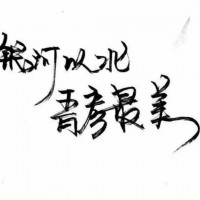 银河以北
晋彦最美